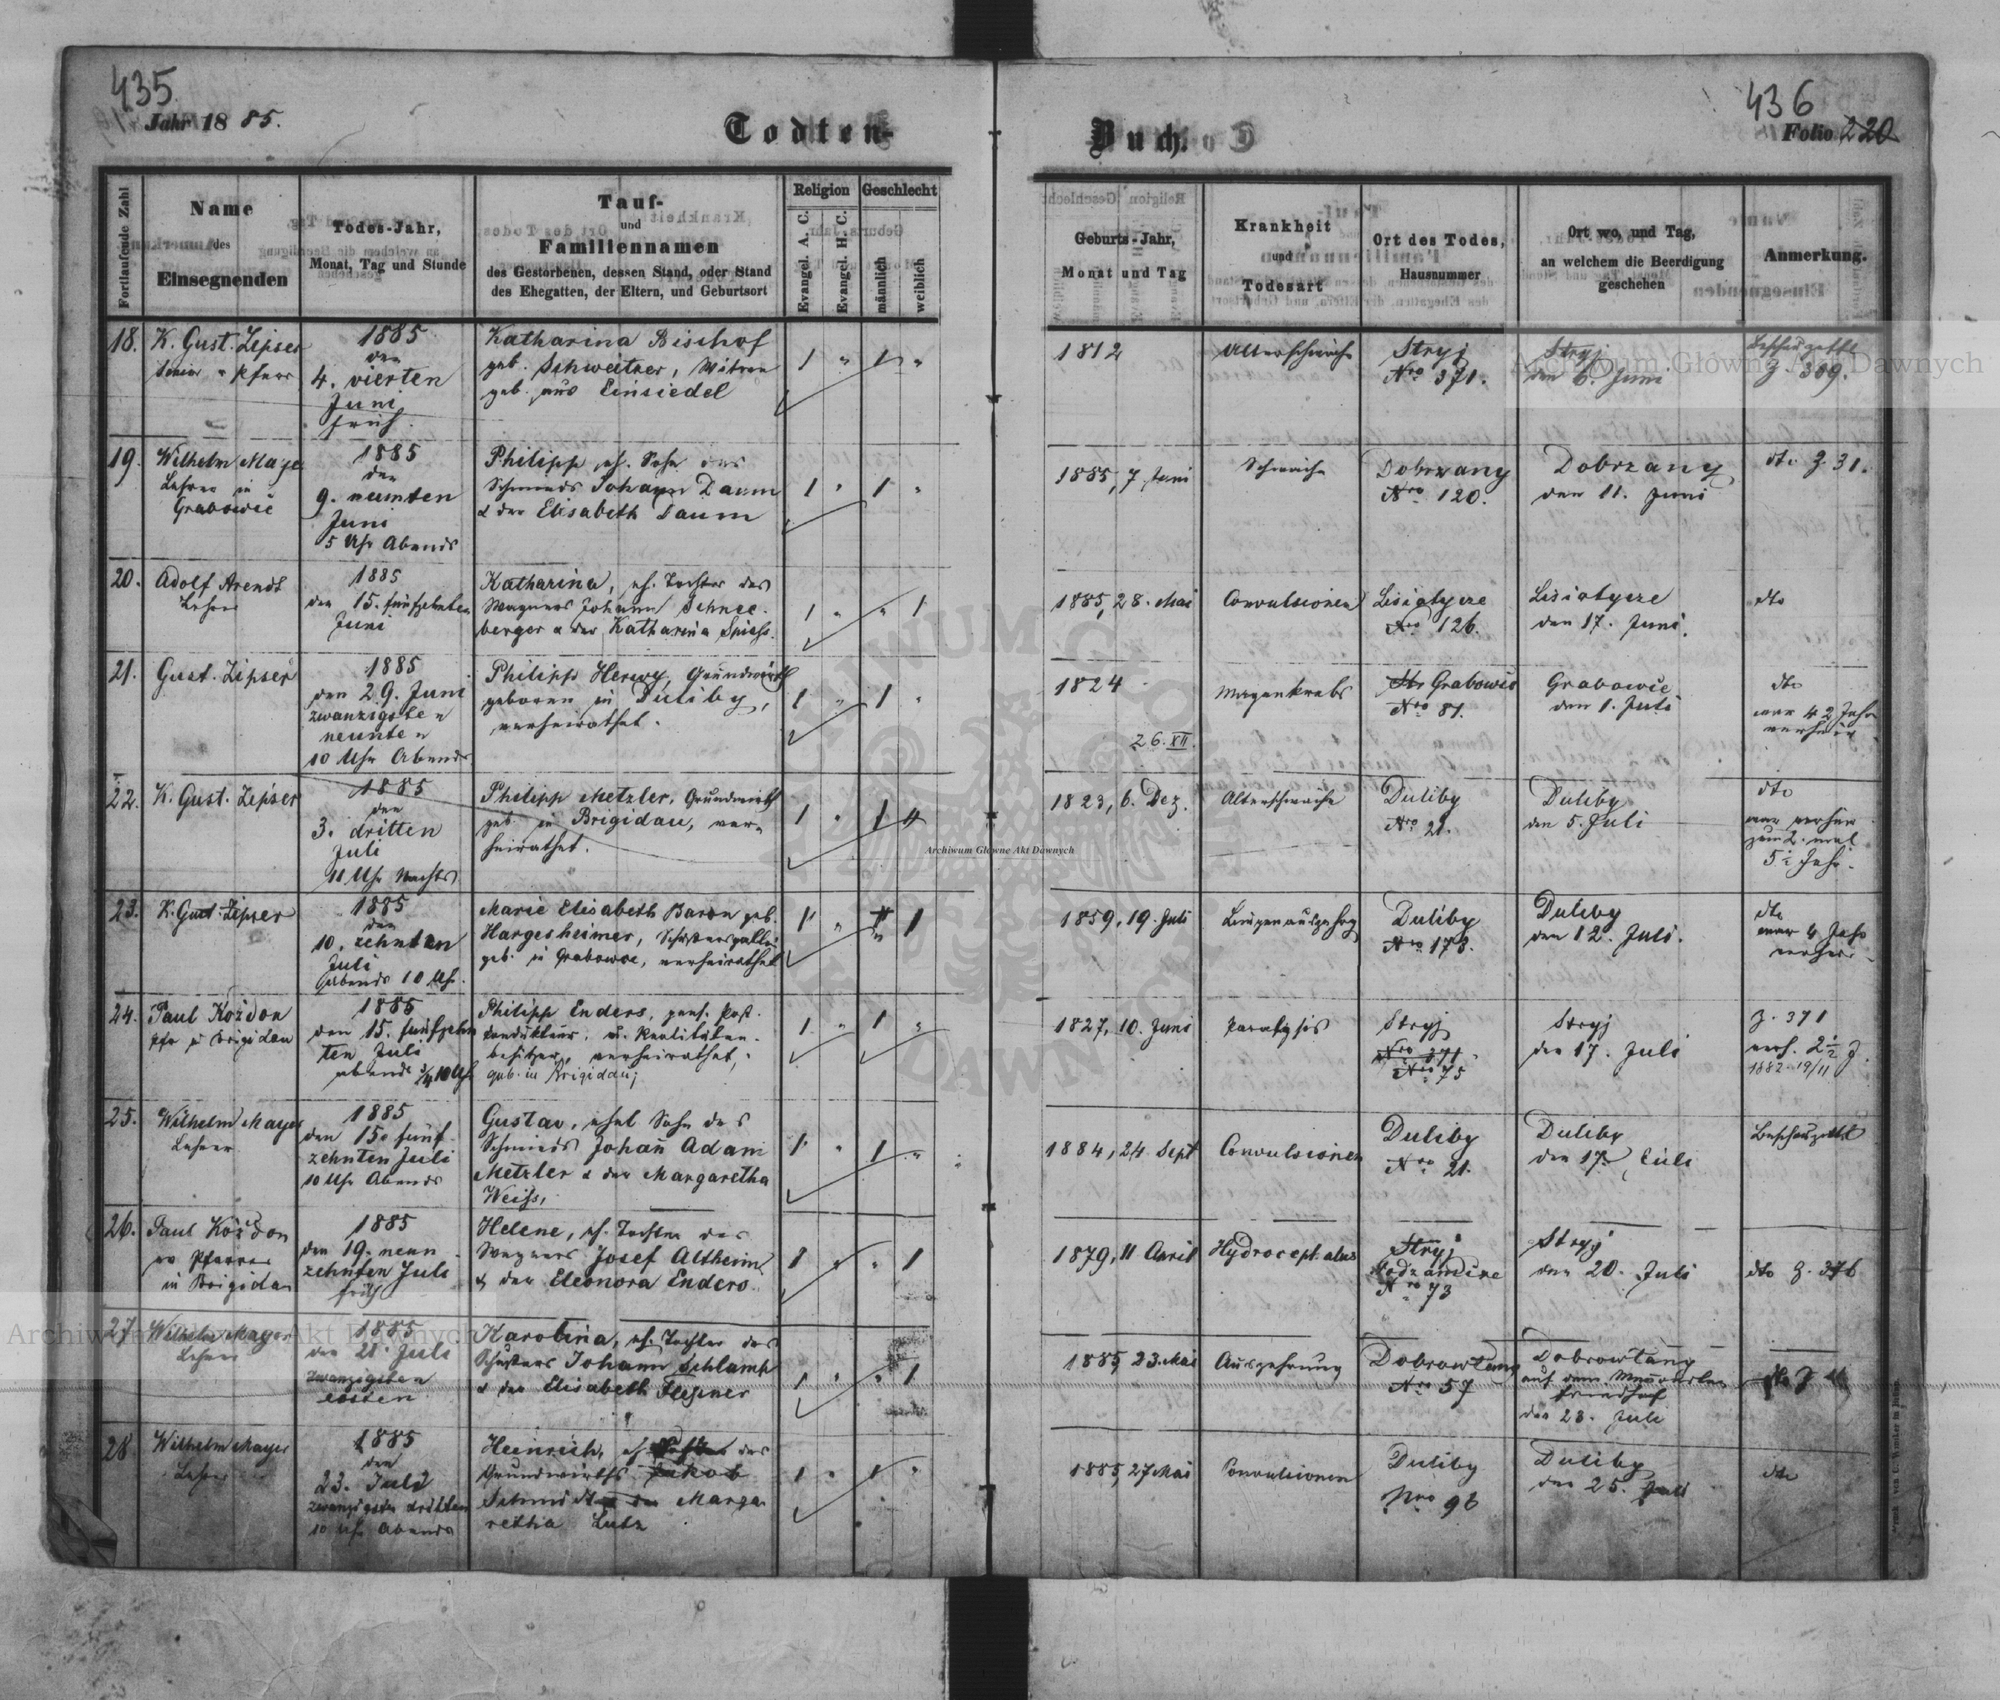 435
Jahr 1885.
Todten-
Buch.
436
Folio 220
Fortlaufende Zahl
Name
des
Einsegnenden
Todes-Jahr,
Monat, Tag und Stunde
Tauf-
und
Familiennamen
des Gestorbenen, dessen Stand, oder Stand
des Ehegatten, der Eltern, und Geburtsort
Religion
Evangel. A. C.
Evangel. H. C.
Geschlecht
männlich
weiblich
Geburts-Jahr,
Monat und Tag
Krankheit
und
Todesart
Ort des Todes,
Hausnummer
Ort wo, und Tag,
an welchem die Beerdigung
geschehen
Anmerkung.
18.
K. Gust. Zipser
1885
den
4. vierten
Juni
früh.
Katharina Bischof
geb. Schweitzer, Witwe
geb. aus Einsiedel
1 " 1 "
1812
Altersschwäche
Stryj
Nro 371.
Stryj
den 6. Juni
Z 309.
19.
Wilhelm Mayer
Lehrer in
Grabowce
1885
den
9. neunten
Juni
5 Uhr Abends
Philipp, eh. Sohn des
Schmieds Johann Daum
& der Elisabeth Daum
1 " 1 "
1885, 7. Juni
Schwäche
Dobrzany
Nro 120.
Dobrzany
den 11. Juni
dto Z 31.
20.
Adolf Arendt
Lehrer
1885
den 15. fünfzehnten
Juni
Katharina, eh. Tochter des
Wagners Johann Schnee-
berger & der Katharina Spiess.
1 " " 1
1885, 28. Mai
Convulsionen
Lisiatycze
Nro 126.
Lisiatycze
den 17. Juni.
dto
21.
Gust. Zipser
1885
den 29. Juni
zwanzigsten
neunten
10 Uhr Abends
Philipp Herwy, Grundwirth
geboren in Duliby,
verheirathet.
1 " 1 "
1824
26. XII.
Magenkrebs
Grabowce
Nro 81.
Grabowce
den 1. Juli
dto
war 42 Jahr
22.
K. Gust. Zipser
1885
den
3. dritten
Juli
11 Uhr Nachts
Philipp Metzler, Grundwirth
geb. in Brigidau, ver-
heirathet.
1 " 1
1823, 6. Dez.
Altersschwäche
Duliby
Nro 21.
Duliby
den 5. Juli
dto
zum 2. mal
23.
K. Gust. Zipser
1885
den
10. zehnten
Juli
Abends 10 Uhr.
Marie Elisabeth Baron geb.
Hargesheimer,
geb. in Grabowce, verheirathet
1 " " 1
1859, 19. Juli
Duliby
Nro 178.
Duliby
den 12. Juli.
dto
war 4 Jahr
24.
Paul Kozdon
Pfr in Brigidau
1885
den 15. fünfzehn
ten Juli
abends 3/4 10 Uhr
Philipp Enders, pens. Post-
kondukteur, u. Realitäten-
besitzer, verheirathet,
geb. in Brigidau;
1 " 1 "
1827, 10. Juni
Paralysis
Stryj
Nro 371
Nro 75
Stryj
den 17. Juli
Z. 371
verh. 2 1/2 J.
1882 19/11
25.
Wilhelm Mayer
Lehrer
1885
den 15. fünf-
zehnten Juli
10 Uhr Abends
Gustav, ehel Sohn des
Schmieds Johan̄ Adam
Metzler & der Margaretha
Weiss,
1 " 1 "
1884, 24. Sept
Convulsionen
Duliby
Nro 21.
Duliby
den 17. Juli
26.
Paul Kozdon
ev Pfarrer
in Brigidau
1885
den 19. neun
zehnten Juli
früh
Helene, eh. Tochter des
Wagners Josef Altheim
& der Eleonora Enders.
1 " " 1
1879, 11 April
Hydrocephalus
Stryj
Nro 73
Stryj
den 20. Juli
dto Z. 376
27.
Wilhelm Mayer
Lehrer
1885
den 21. Juli
zwanzigsten
ersten
Karolina, eh. Tochter des
Schusters Johann Schlamp
& der Elisabeth
1 " " 1
1885, 23. Mai
Auszehrung
Dobrowlany
Nro 57
Dobrowlany
auf dem
Friedhof
den 23. Juli
28
Wilhelm Mayer
Lehrer
1885
den
23. Juli
zwanzigsten dritten
10 Uhr Abends
Heinrich, eh. des
Grundwirths Jakob
Schmidt & der Marga
retha Lutz
1 " 1 "
1885, 27 Mai
Convulsionen
Duliby
Nro 96
Duliby
den 25. Juli
dto
Archiwum Główne Akt Dawnych
Archiwum Główne Akt Dawnych
Archiwum Główne Akt Dawnych